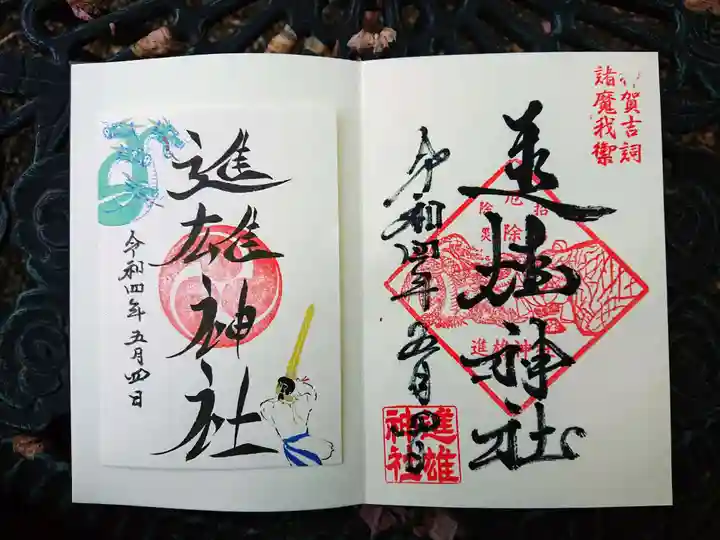 進雄神社
令和四年五月四日
賀吉詞
諸魔我禦
進雄神社
令和四年五月四日
厄除
除災
進雄神社